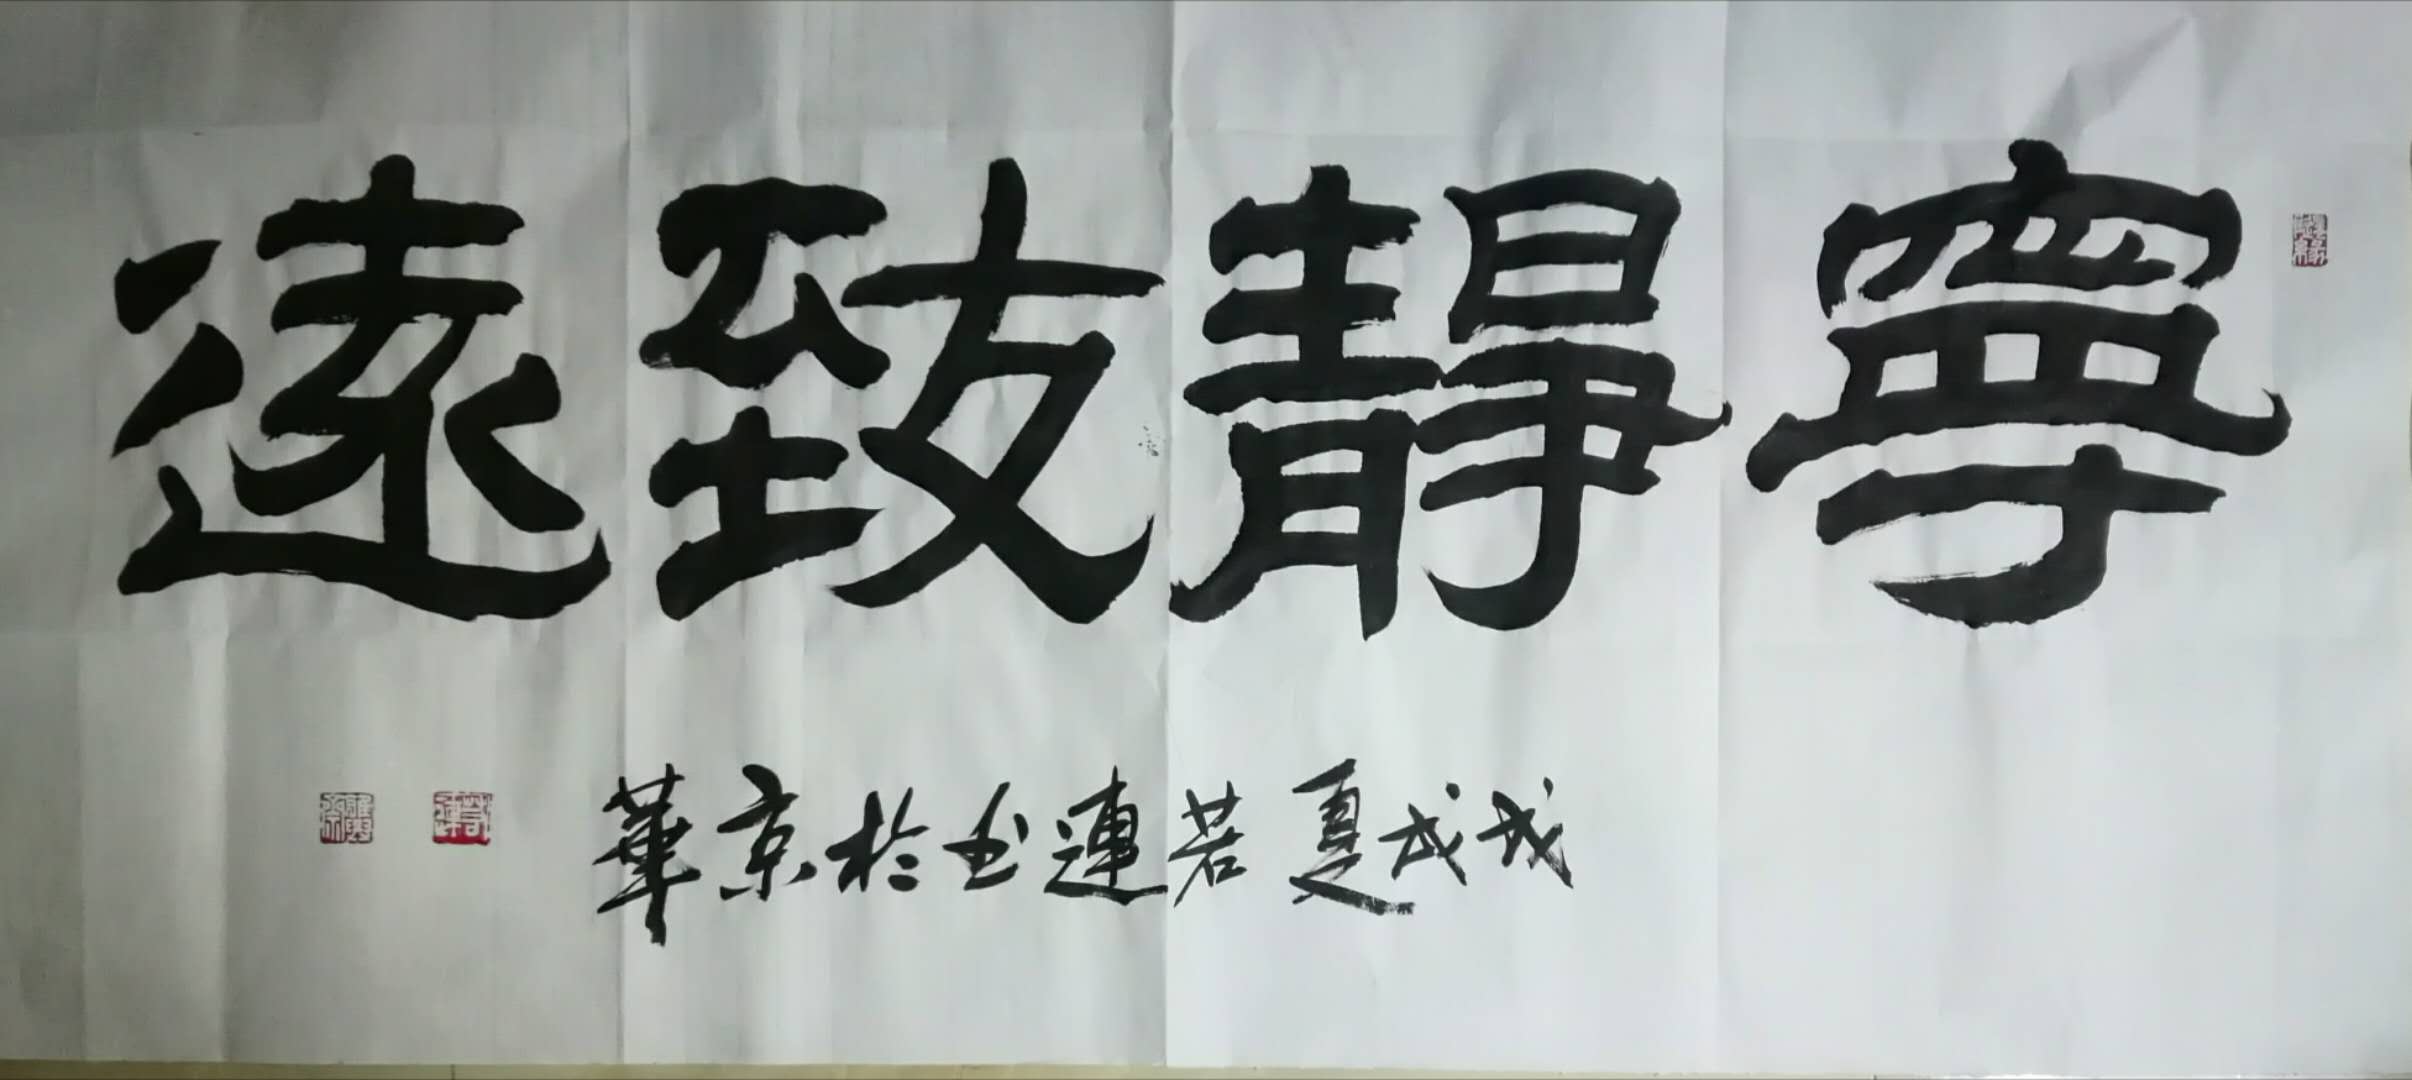 寧靜致遠
戊戌夏若連书於京華
若連